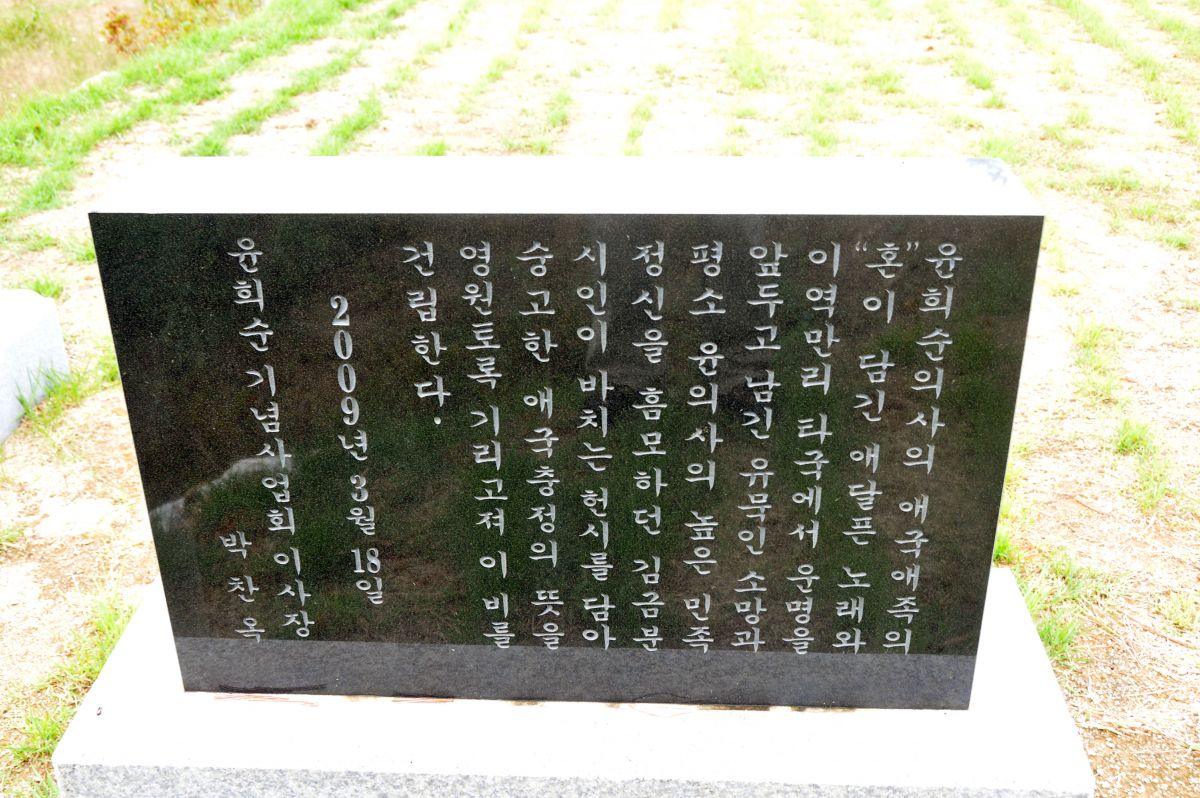 윤희순의사의 애국애족의
“혼”이 담긴 애달픈 노래와
이역만리 타국에서 운명을
앞두고 남긴 유묵인 소망과
평소 윤의사의 높은 민족
정신을 흠모하던 김금분
시인이 바치는 헌시를 담아
숭고한 애국충정의 뜻을
영원토록 기리고져 이 비를
건립한다.
2009년 3월 18일
윤희순기념사업회 이사장
박찬옥